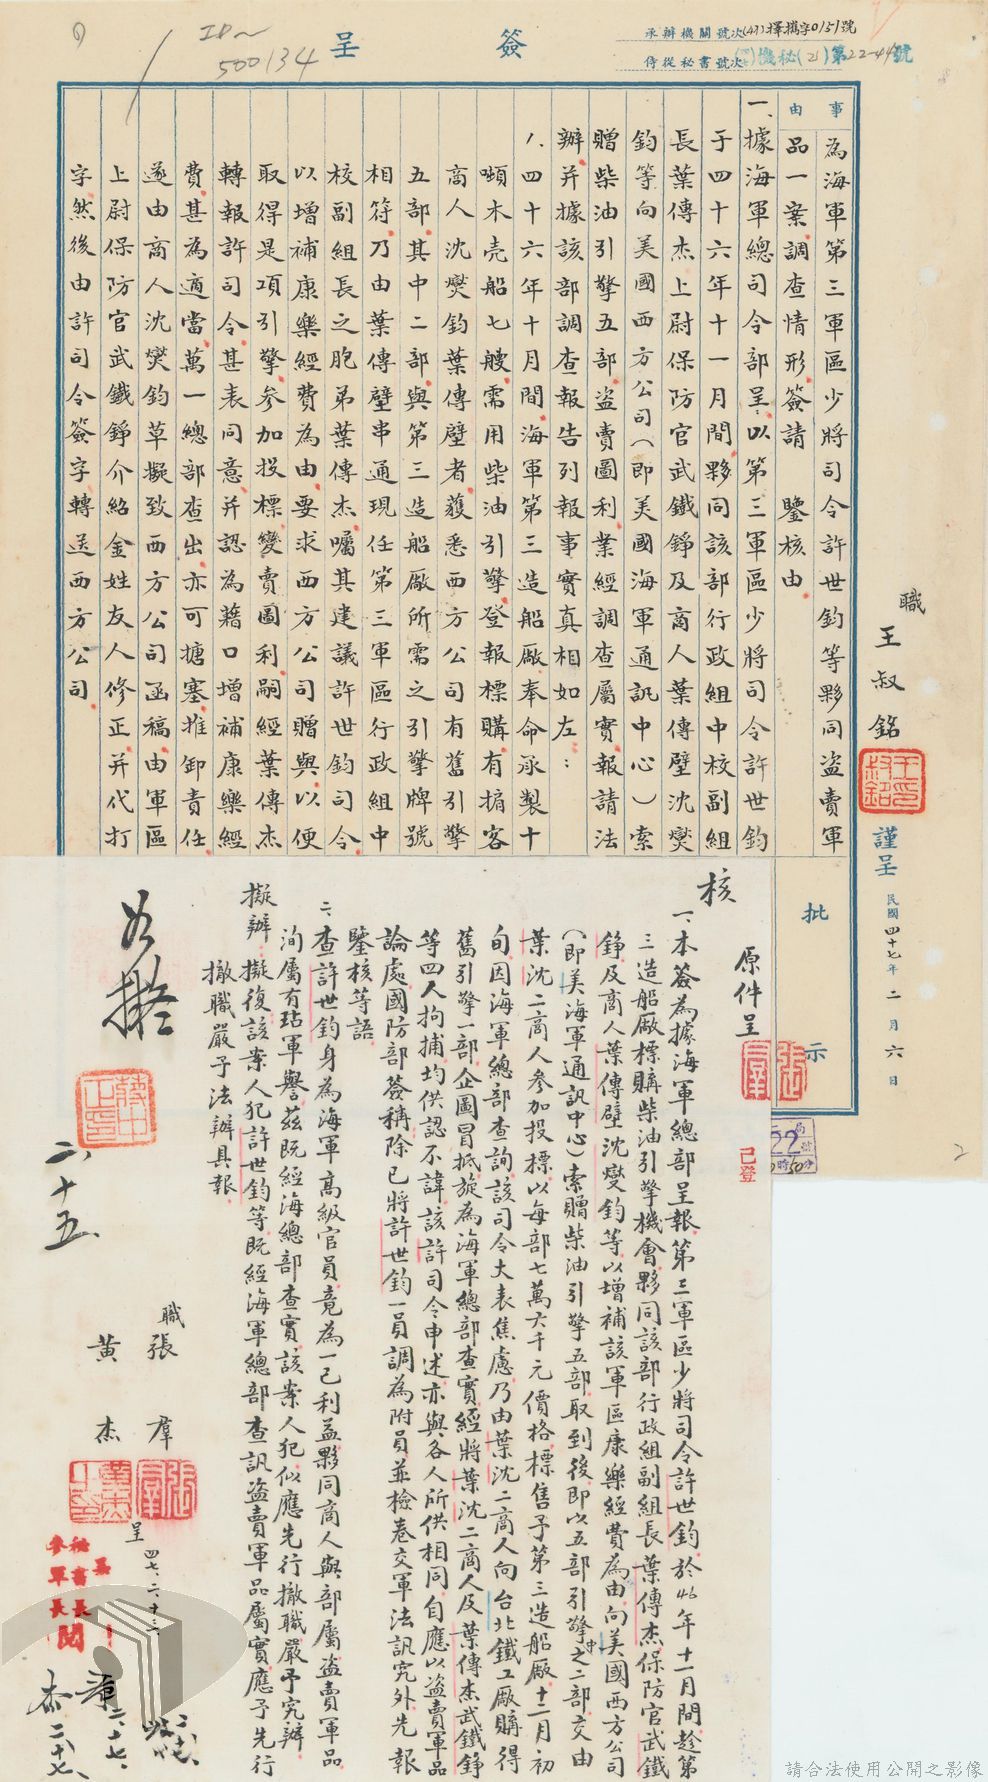 簽呈
承辦機關號次(47)擇攜字0151號
侍從秘書號次 機秘(21)第22-44號
500134
事由
為海軍第三軍區少將司令許世鈞等夥同盜賣軍
品一案調查情形簽請 鑒核由
一、據海軍總司令部呈以第三軍區少將司令許世鈞
于四十六年十一月間夥同該部行政組中校副組
長葉傳杰上尉保防官武鐵錚及商人葉傳壁沈爕
鈞等向美國西方公司(即美國海軍通訊中心)索
贈柴油引擎五部盜賣圖利業經調查屬實報請法
辦并據該部調查報告列報事實真相如左:
1.四十六年十月間海軍第三造船廠奉命承製十
噸木壳船七艘需用柴油引擎登報標購有掮客
商人沈爕鈞葉傳壁者獲悉西方公司有舊引擎
五部其中二部與第三造船廠所需之引擎牌號
相符乃由葉傳壁串通現任第三軍區行政組中
校副組長之胞弟葉傳杰囑其建議許世鈞司令
以增補康樂經費為由要求西方公司贈與以便
取得是項引擎參加投標變賣圖利嗣經葉傳杰
轉報許司令甚表同意并認為藉口增補康樂經
費甚為適當萬一總部查出亦可搪塞推卸責任
遂由商人沈爕鈞草擬致西方公司函稿由軍區
上尉保防官武鐵錚介紹金姓友人修正并代打
字然後由許司令簽字轉送西方公司
職 王叔銘 謹呈 民國四十七年二月六日
批示
核 原件呈
已登
一、本簽為據海軍總部呈報第三軍區少將司令許世鈞於46年十一月間趁第
三造船廠標購柴油引擎機會夥同該部行政組副組長葉傳杰保防官武鐵
錚及商人葉傳壁沈爕鈞等以增補該軍區康樂經費為由向美國西方公司
(即美海軍通訊中心)索贈柴油引擎五部取到後即以五部引擎中之二部交由
葉沈二商人參加投標以每部七萬六千元價格標售予第三造船廠十二月初
旬因海軍總部查詢該司令大表焦慮乃由葉沈二商人向台北鐵工廠購得
舊引擎一部企圖冒抵旋為海軍總部查實經將葉沈二商人及葉傳杰武鐵錚
等四人拘捕均供認不諱該許司令申述亦與各人所供相同自應以盜賣軍品
論處國防部簽稱除已將許世鈞一員調為附員並檢卷交軍法訊究外先報
鑒核等語
二、查許世鈞身為海軍高級官員竟為一己利益夥同商人與部屬盜賣軍品
洵屬有玷軍譽茲既經海總部查實該案人犯似應先行撤職嚴予究辦
擬辦:擬復該案人犯許世鈞等既經海軍總部查訊盜賣軍品屬實應予先行
撤職嚴予法辦具報
如擬
蔣中正印
二、十五、
職 張群
黃杰 呈 四七、二、十三
秘書長
參軍長
閱
請合法使用公開之影像